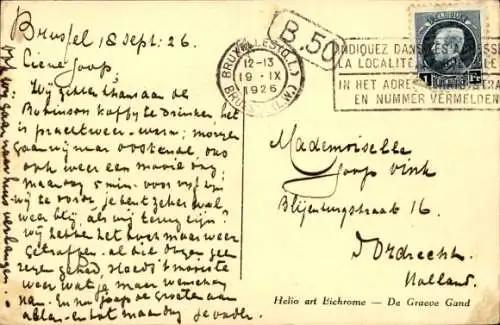 Brussel, 18 Sept: 26.
Lieve Joop,
Wij zitten thans aan de
Robinson koffy te drinken het
is prachtweer - warm; morgen
gaan wij naar Oostende dus
ook weer een mooie dag
maandag 5 min. voor
te voorde. je bent zeker wel
weer blij, als wij terug zijn?
Wij hebben het toch maar weer
getroffen. al die dagen geen
regen gehad, steeds 't mooiste
weer wat je maar wenschen
kan. En nu Joop de groeten aan
allen en tot maandag
BRUXELLES (Q.L.)
12-13
19 IX
1926
B.50
INDIQUEZ DANS LES ADRESSES
LA LOCALITE
IN HET ADRES
EN NUMMER VERMELDEN
BELGIQUE
1 Fr
Mademoiselle
Joop Vink
Blijenburgstraat 16
Dordrecht
Holland.
Helio art Bichrome — De Graeve Gand